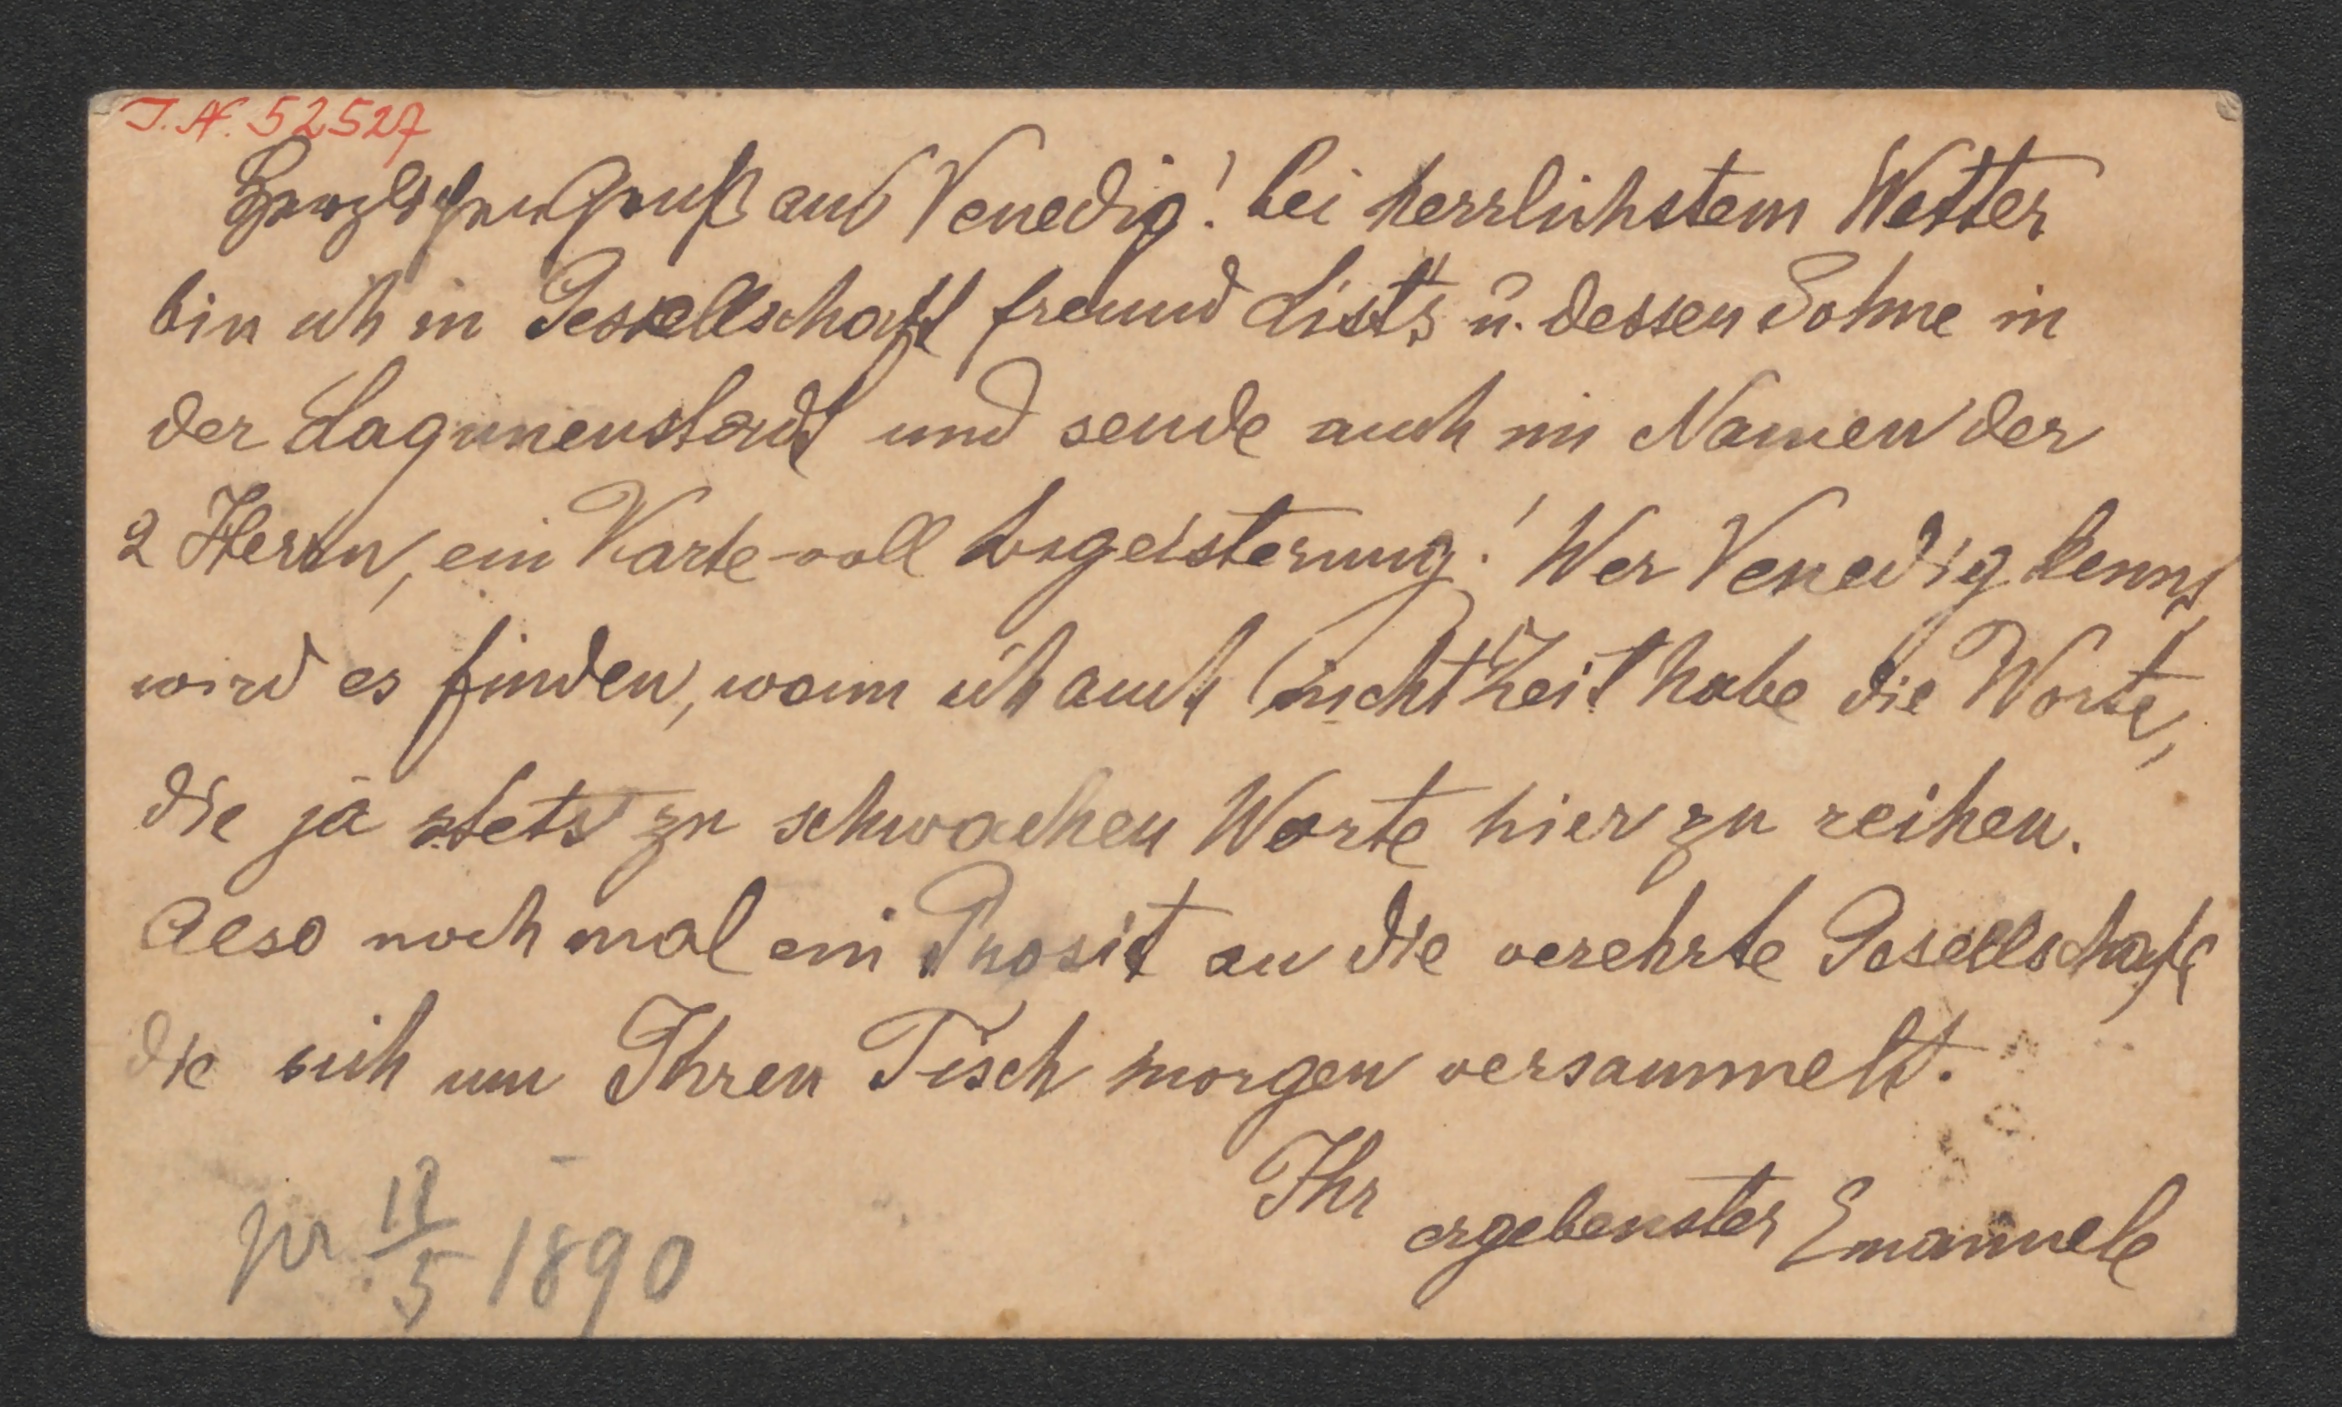 I.N. 52527
Herzlichen Gruß aus Venedig! bei herrlichstem Wetter
bin ich in Gesellschaft freund Lists u. dessen Sohne in
der Lagunenstadt und sende auch im Namen der
2 Herrn, ein Karte voll Begeisterung! Wer Venedig kennt,
wird es finden, wenn ich auch nicht Zeit habe die Worte,
die ja stets zu schwachen Worte hier zu reihen.
Also noch mal ein Prosit an die verehrte Gesellschaft
die sich um Ihren Tisch morgen versammelt.
Ihr ergebenster Emanuele
pr 12/5 1890